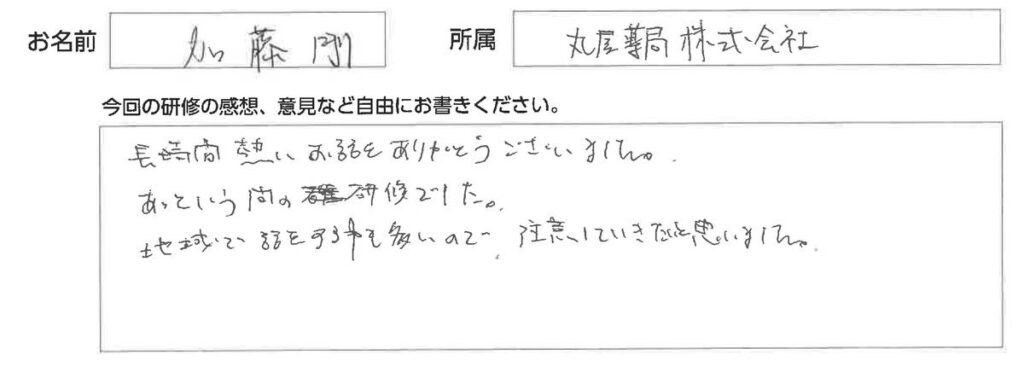 お名前 加藤 剛 所属 丸尾薬局 株式会社
今回の研修の感想、意見など自由にお書きください。
長時間 熱い お話を ありがとう ございました。
あっという間の 研修でした。
地域で 話をする事も多いので、注意していきたいと思いました。